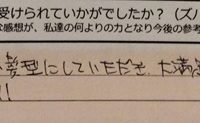 受けられていかがでしたか？（ズバ
な感想が、私達の何よりの力となり今後の参考
髪型にしていただき、大満足
!!